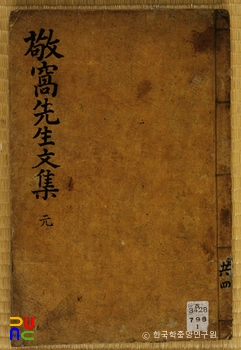 敬窩先生文集
元
共四
3428
798
1
ⓒ 한국학중앙연구원